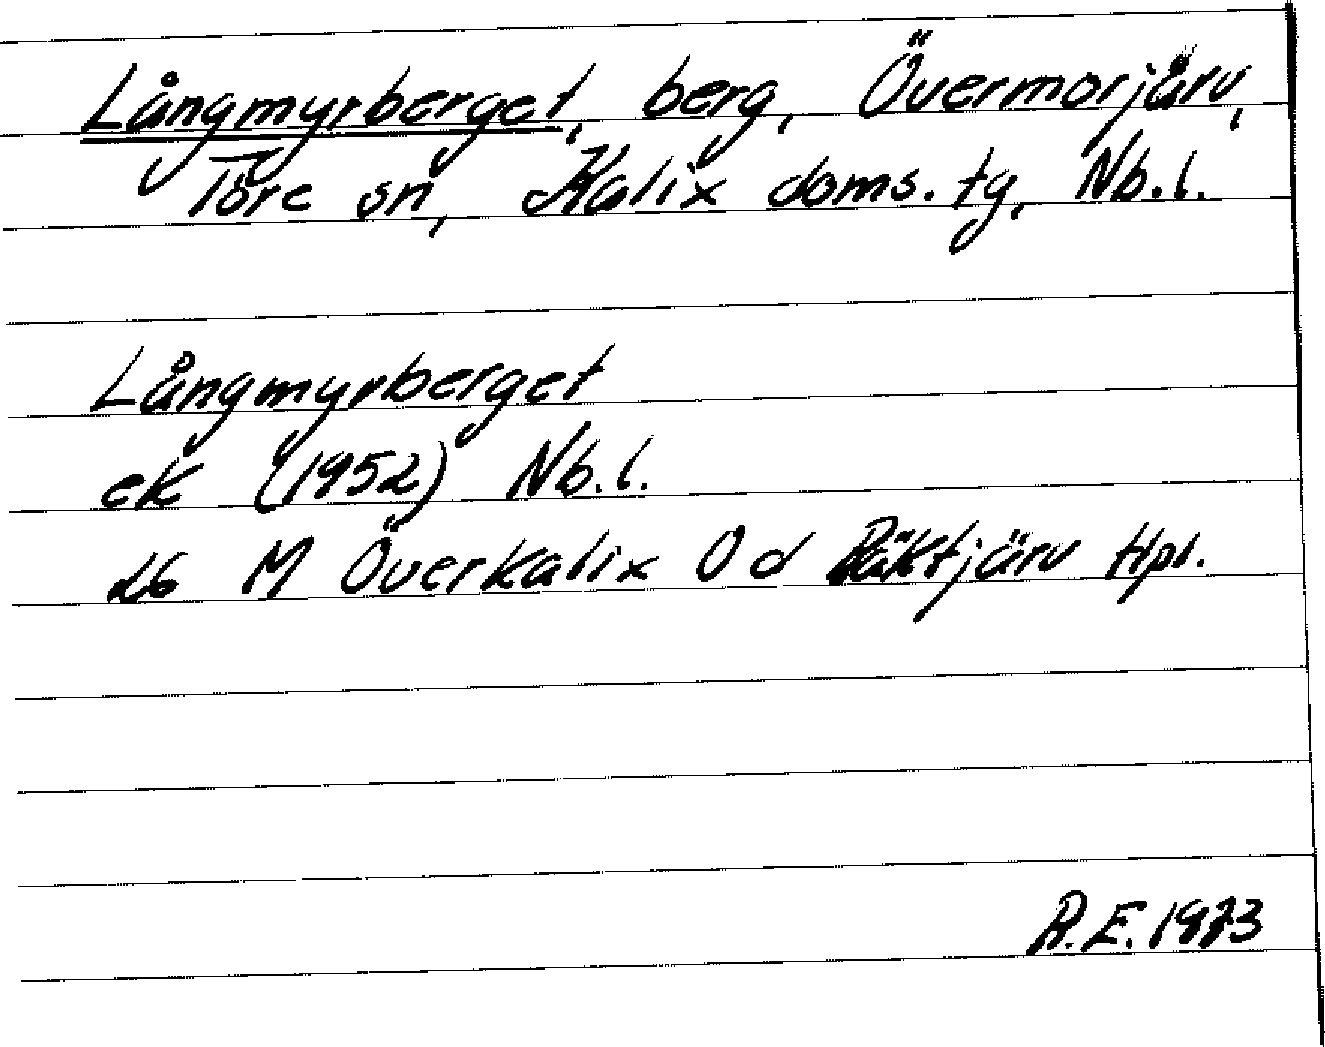 Långmyrberget, berg, Övermorjärv,
Töre sn, Kalix doms. tg, Nb.l.
Långmyrberget
ek (1952) Nb.l.
26 M Överkalix 0 d Räktjärv Hpl.
R.E. 1973